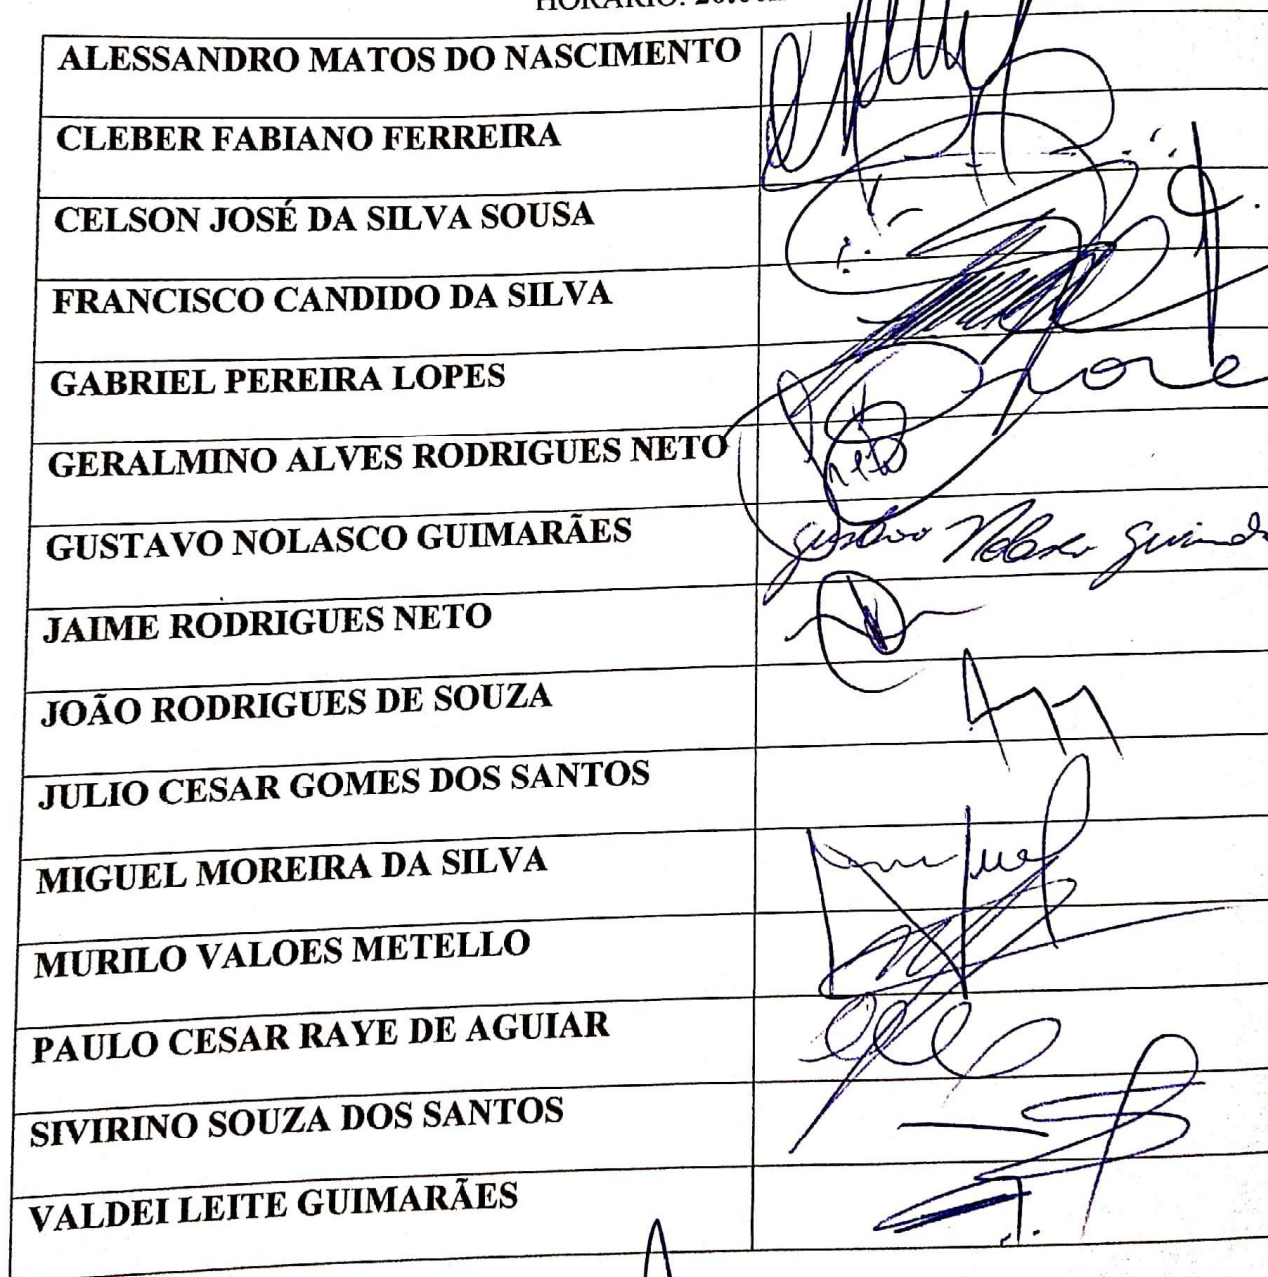 HORÁRIO: 20:00
ALESSANDRO MATOS DO NASCIMENTO
CLEBER FABIANO FERREIRA
CELSON JOSÉ DA SILVA SOUSA
FRANCISCO CANDIDO DA SILVA
GABRIEL PEREIRA LOPES
GERALMINO ALVES RODRIGUES NETO neto
GUSTAVO NOLASCO GUIMARÃES Gustavo Nolasco Guimarã
JAIME RODRIGUES NETO
JOÃO RODRIGUES DE SOUZA
JULIO CESAR GOMES DOS SANTOS
MIGUEL MOREIRA DA SILVA miguel
MURILO VALOES METELLO
PAULO CESAR RAYE DE AGUIAR
SIVIRINO SOUZA DOS SANTOS
VALDEI LEITE GUIMARÃES